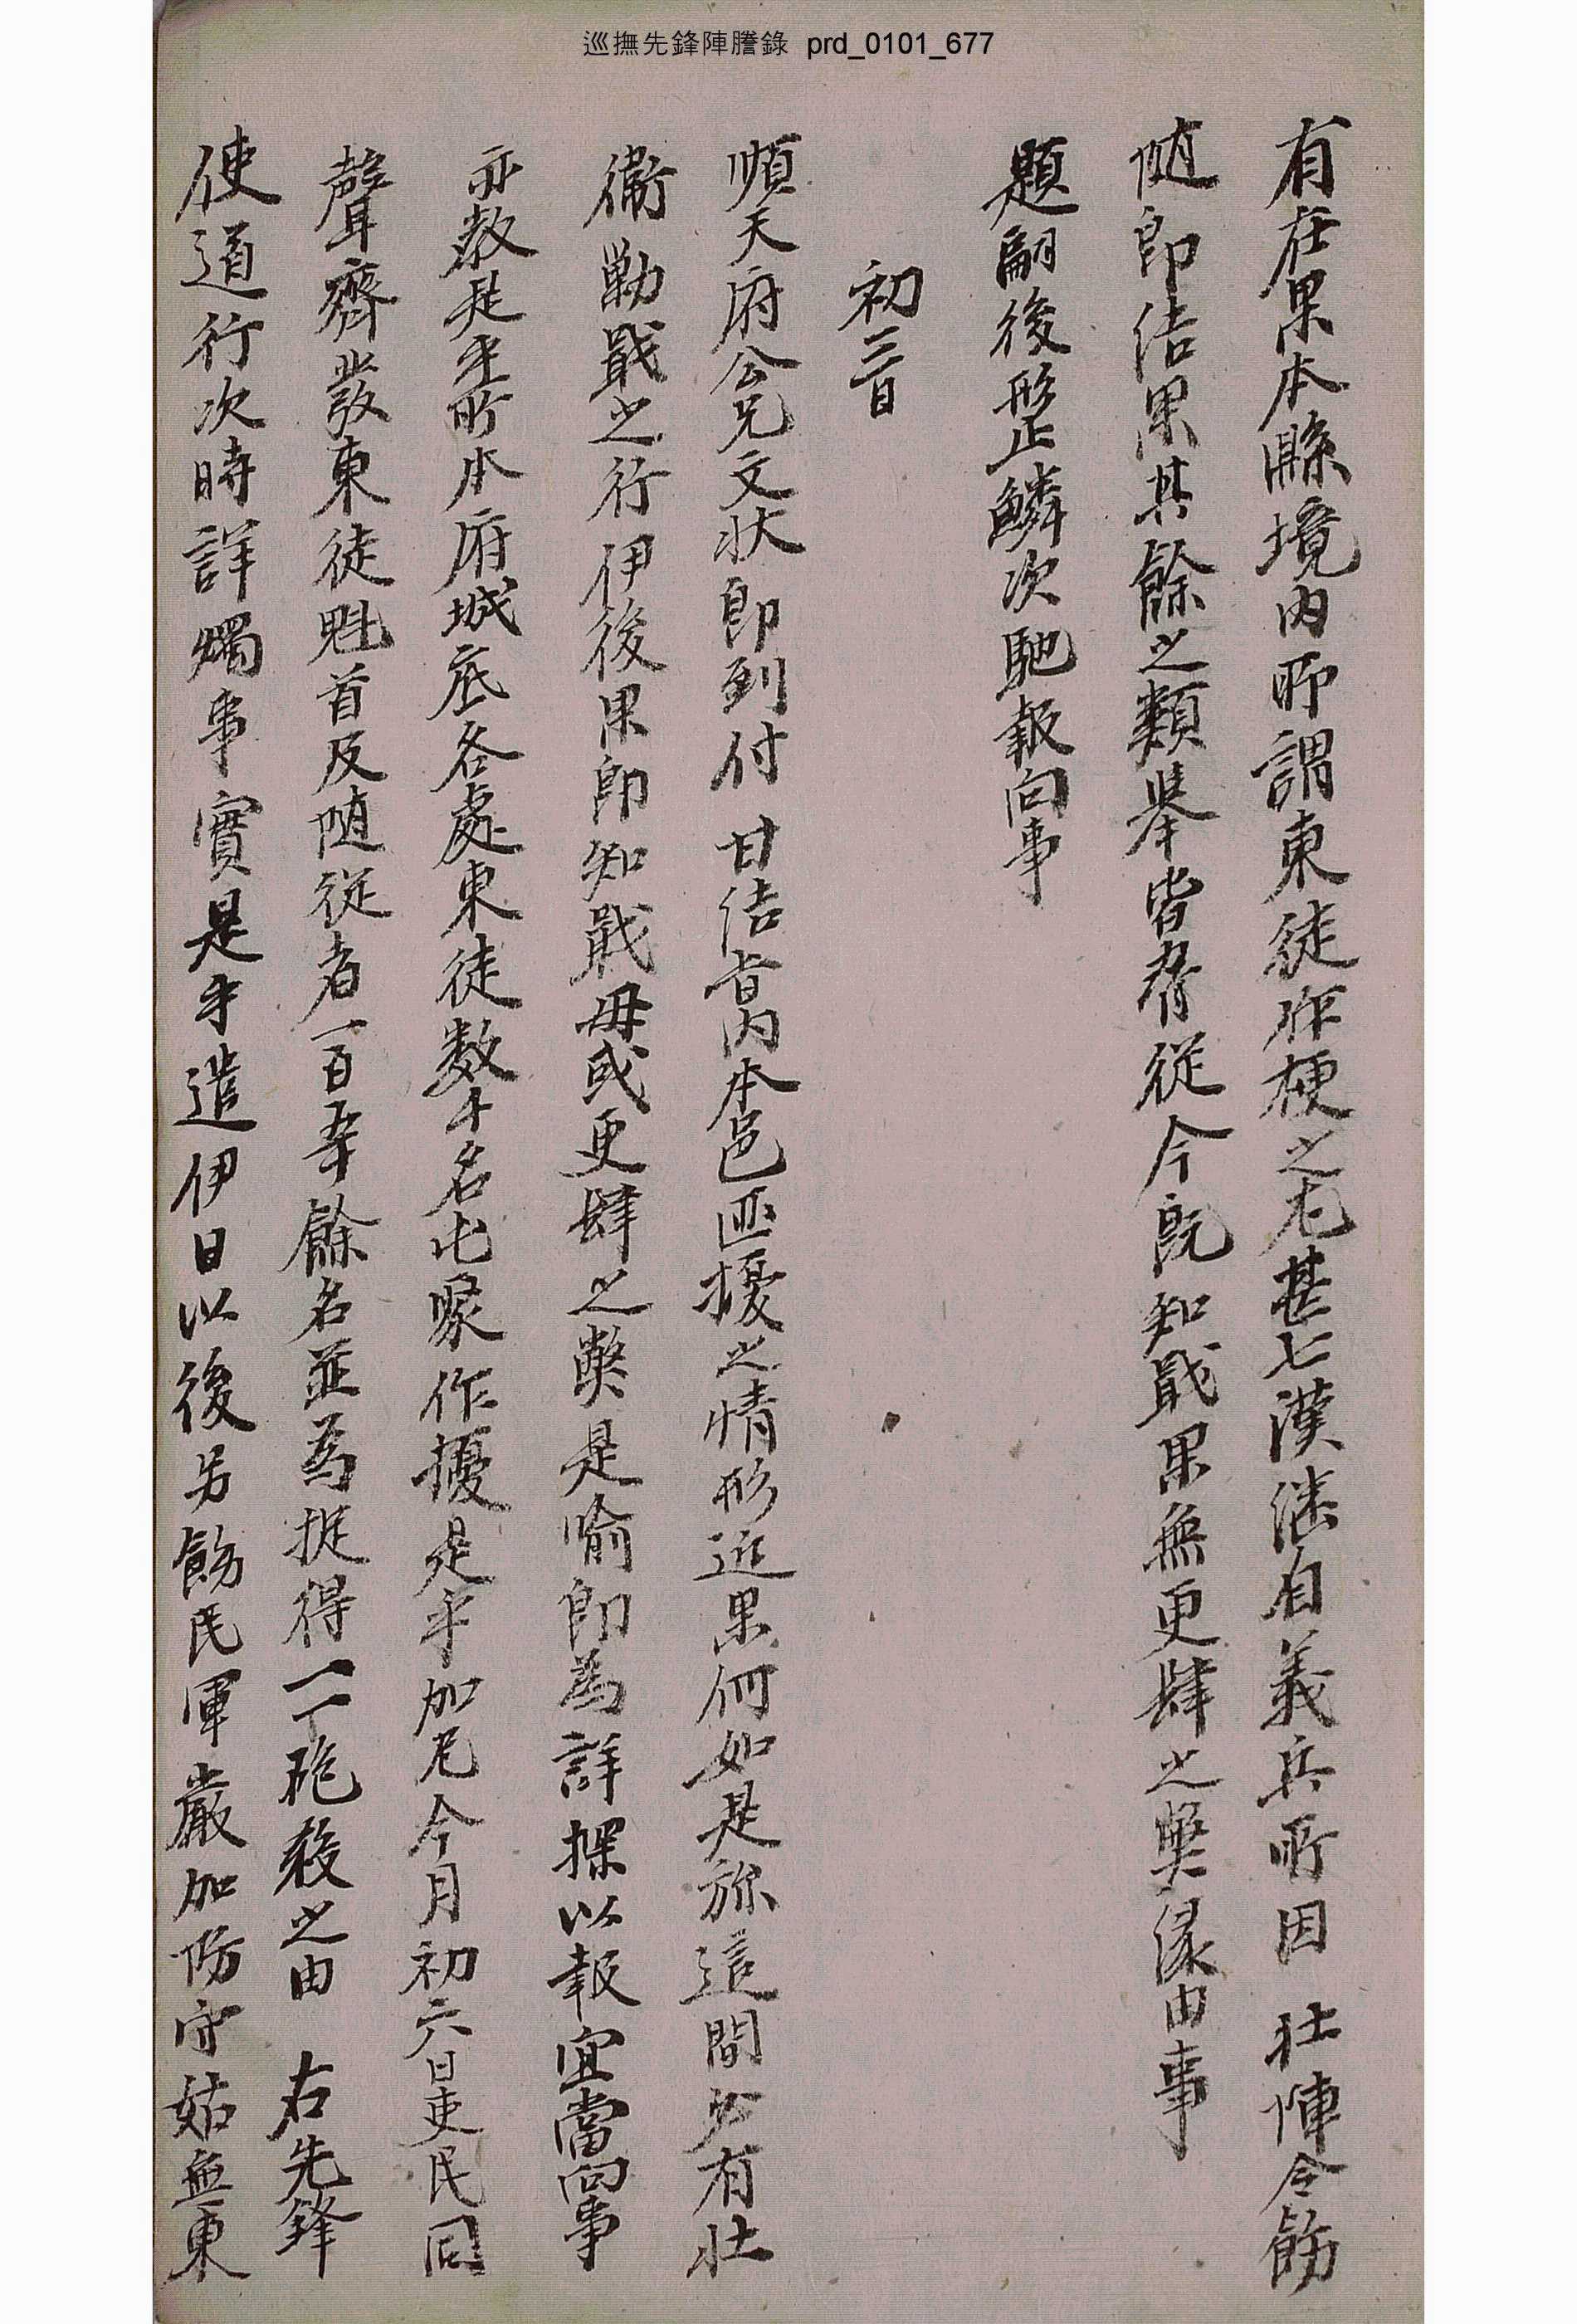 巡撫先鋒陣謄錄 prd_0101_677
有在果本縣境內所謂東徒作梗之尤甚七漢段自義兵所因 壯陣令飭
随即結果其餘之類擧皆脅從今既知戢果無更肆之獘緣由事
題嗣後形止鱗次馳報向事
初三日
順天府公兄文狀卽到付 甘結旨內本邑匪擾之情形近果何如是旀這間必有壯
衛勦戢之行伊後果卽知戢毋或更肆之獘是喩卽為詳探以報宜當向事
亦教是乎所本府城底各處東徒数十名屯聚作擾是乎加尼今月初六日吏民同
聲齊發東徒魁首及随從者一百五十餘名並為捉得一一砲殺之由 右先鋒
使道行次時詳燭事實是乎遣伊日以後另飭民軍嚴加防守姑無東